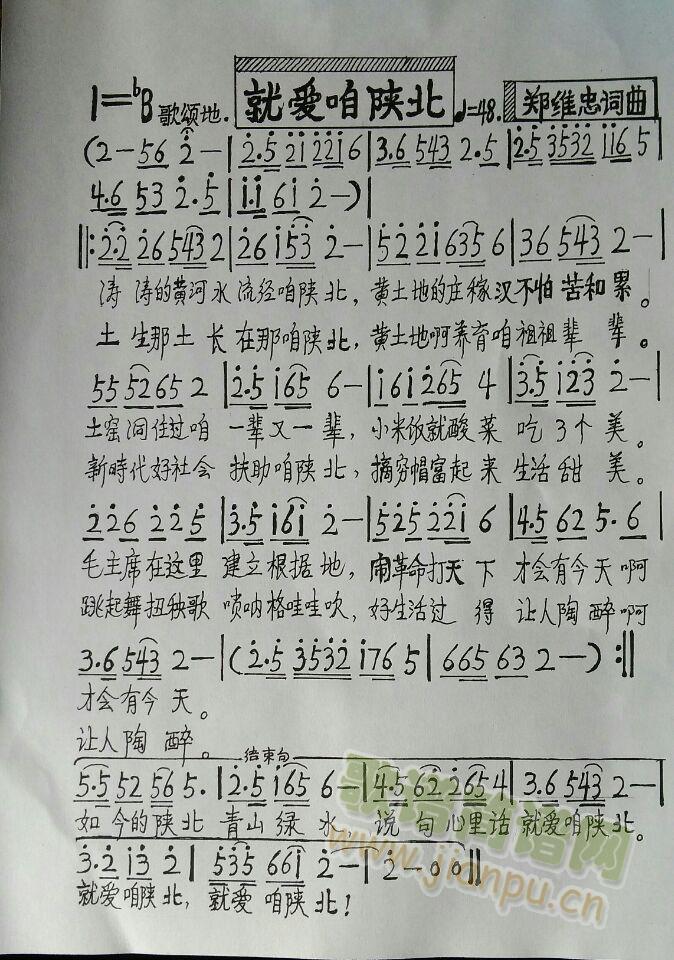 1=♭B 歌颂地. 就爱咱陕北 ♩=48. 郑维忠词曲
(2— 56 2— | 2·5 21 2216 | 3·6 543 2·5 | 2·5 3532 116 5
4·6 53 2·5 | 1·1 61 2—) |
‖: 2·2 26 543 2 | 26 153 2— | 52 21 635 6 | 36 543 2— |
涛 涛的黄河水 流经咱陕北, 黄土地的庄稼汉不怕苦和累。
土 生那土长 在那咱陕北, 黄土地啊养育咱祖祖辈 辈。
55 5265 2 | 2·5 165 6— | 161 265 4 | 3·5 123 2— |
土窑洞住过咱 一辈又一辈, 小米饭就酸菜 吃了个美。
新時代好社会 扶助咱陕北, 摘穷帽富起来 生活甜 美。
226 225 | 3·5 161 2— | 525 221 6 | 4·5 62 5·6 |
毛主席在这里 建立根据地, 闹革命打天下 才会有今天啊
跳起舞扭秧歌 唢呐格哇哇吹, 好生活过得 让人陶醉啊
3·6 543 2— | (2·5 3532 176 5 | 665 63 2—) :‖
才会有今 天。
让人陶 醉。
结束句
5·5 52 56 5· | 2·5 165 6— | 4·5 62 265 4 | 3·6 543 2— |
如 今的陕北 青山绿 水 说 句心里话 就爱咱陕北。
3·2 13 2 | 535 661 2— | 2—00‖
就爱咱陕北, 就爱 咱陕 北!
歌谱简谱网
www.jianpu.cn